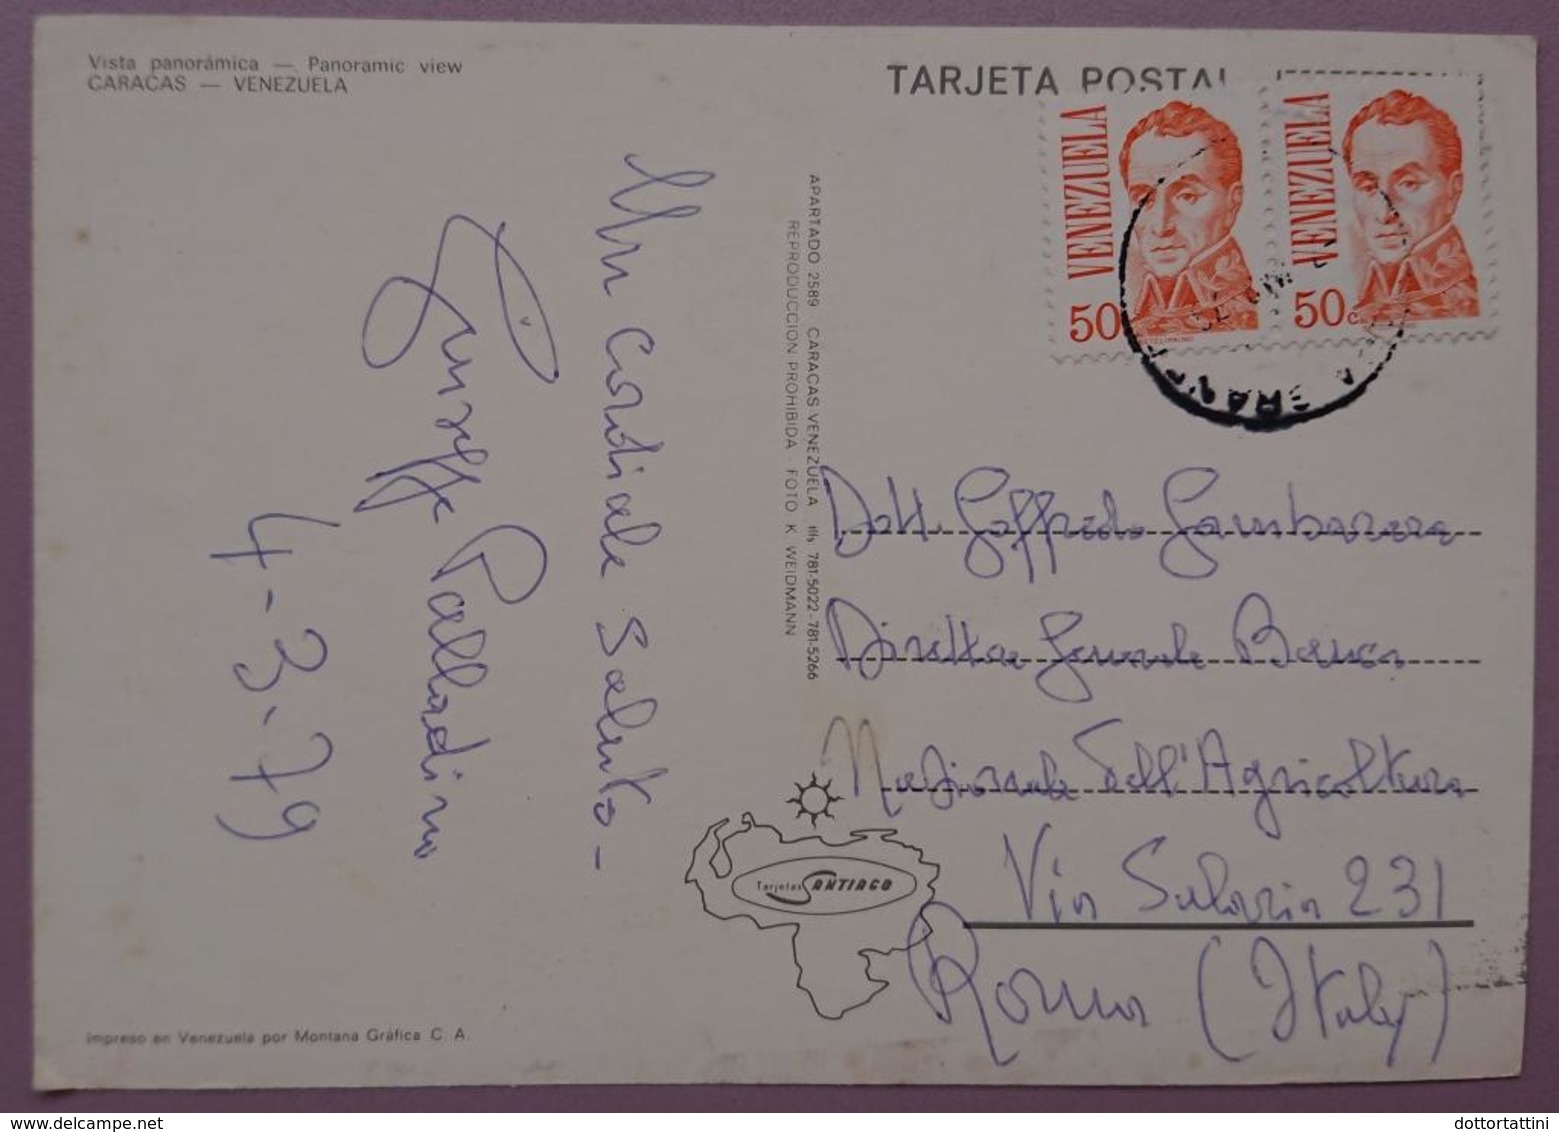 Vista panorámica — Panoramic view
CARACAS — VENEZUELA
TARJETA POSTAL
VENEZUELA
50
VENEZUELA
50c
Un Cordiale Saluto -
Giuseppe Palladino
4-3-79
APARTADO 2589 CARACAS-VENEZUELA tlfs 781-5022-781-5266
REPRODUCCION PROHIBIDA FOTO K. WEIDMANN
Dott. Goffredo Gambarara
Direttore Generale Banca
Nazionale dell'Agricoltura
Via Salaria 231
Roma (Italy)
Tarjetas SANTIAGO
Impreso en Venezuela por Montana Gráfica C. A.
dottortattini